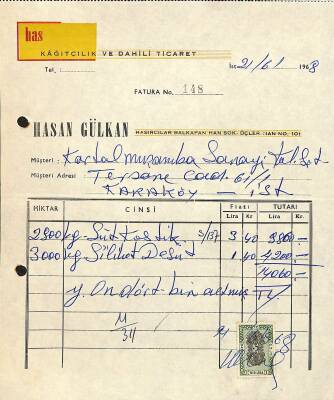 bas
KÂĞITCILIK VE DAHİLİ TİCARET
Tel.: İst. 21/6/1968
FATURA No. 148
HASAN GÜLKAN HASIRCILAR BALKAPAN HAN SOK. ÜÇLER HAN NO. 101
Müşteri : Kartal Muşamba Sanayi
Müşteri Adresi Tersane Cad. 61/1
KARAKÖY — İST
MİKTAR CİNSİ Fiatı TUTARI
Lira Kr. Lira Kr.
2900 kg. 3 40 9860.-
3000 kg. 1 40 4200.-
14060.-
Y. Ondört bin altmış TL.